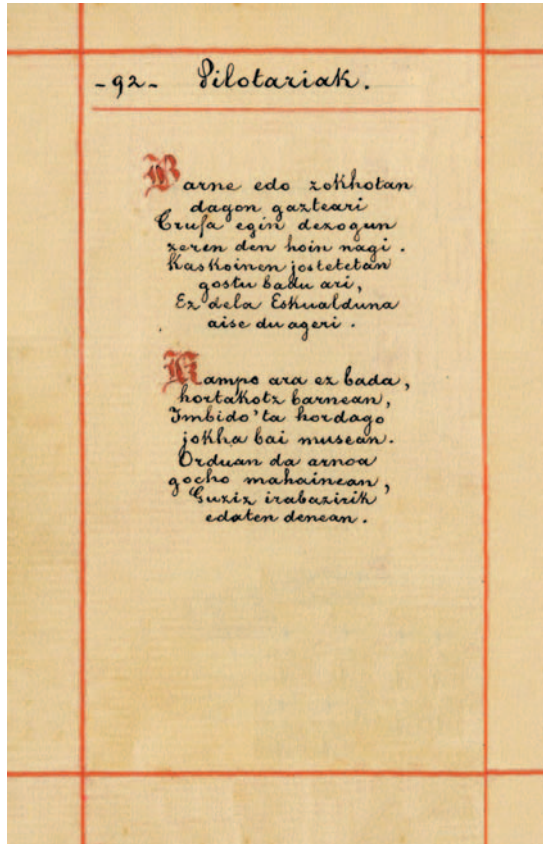 -92- Pilotariak.
Barne edo zokhotan
dagon gazteari
Trufa egin dezogun
zeren den hoin nagi.
Kaskoinen jostetetan
gostu badu ari,
Ez dela Eskualduna
aise du ageri.
Kampo ara ez bada,
hortakotz barnean,
Imbido'ta hordago
jokha bai musean.
Orduan da arnoa
gocho mahainean,
Guziz irabazirik
edaten denean.